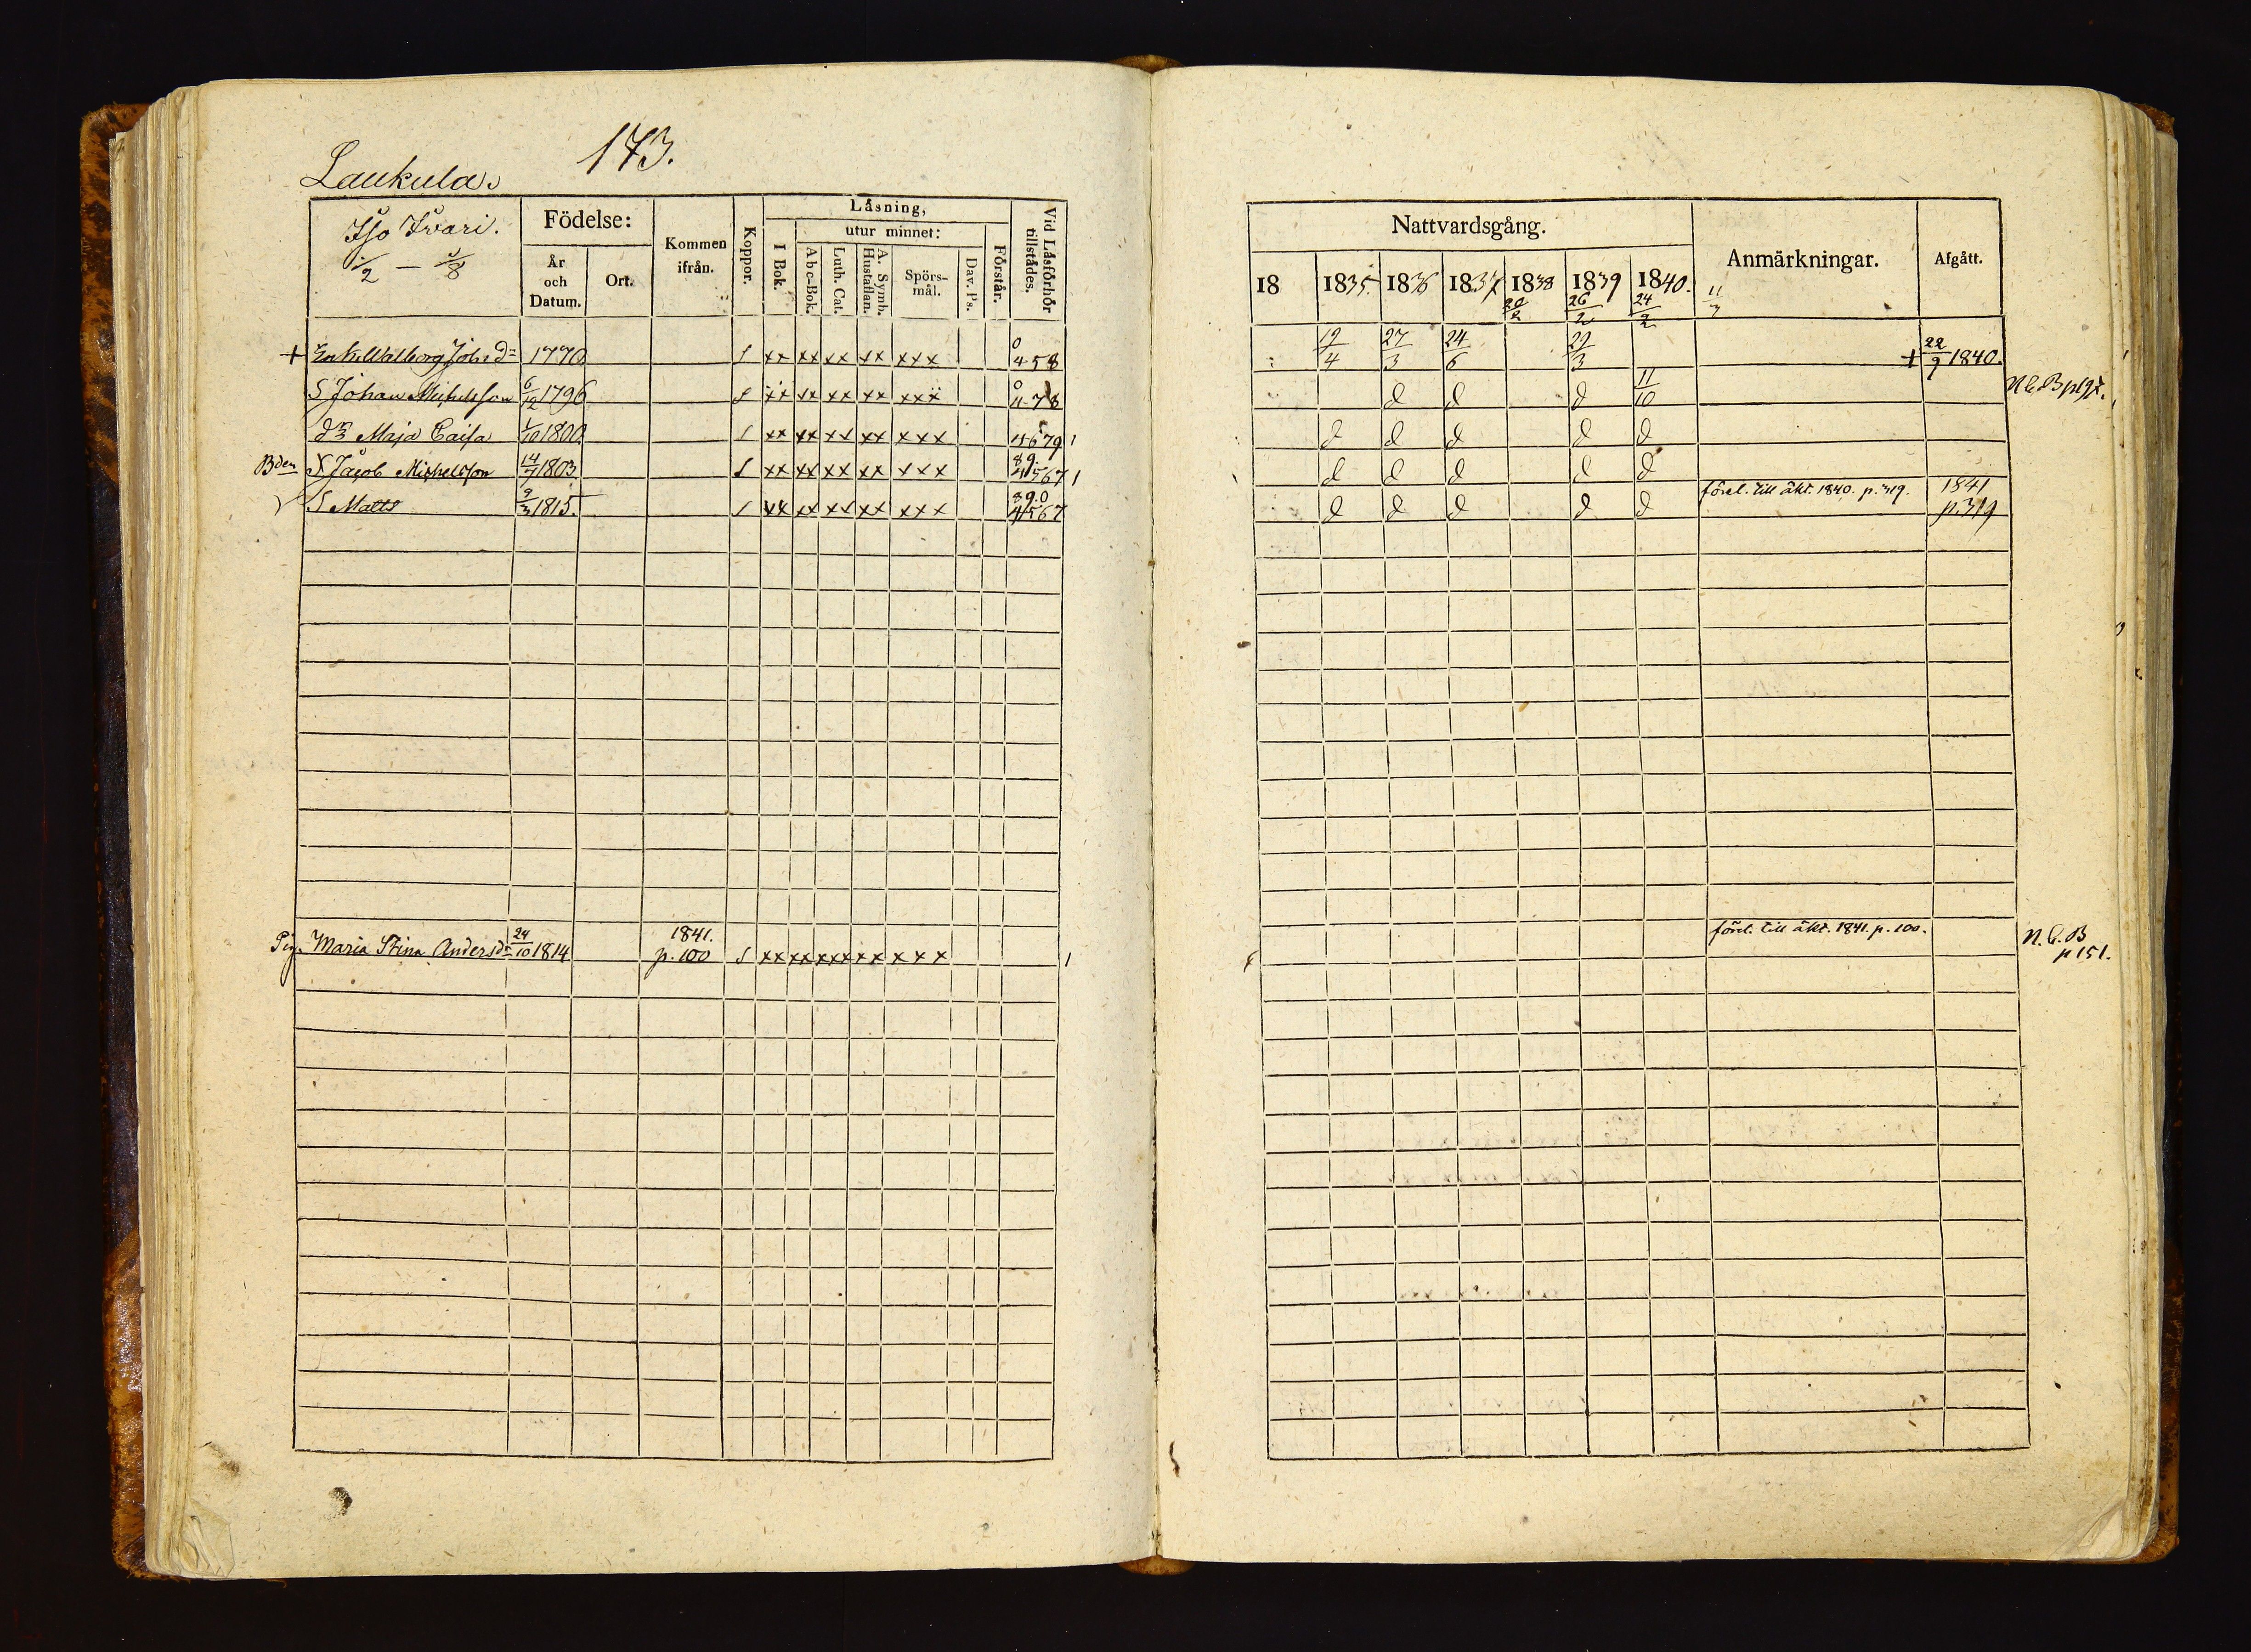 Laukula.
173.
Iso Iivari.
1/2 — 3/8
Födelse:
År och Datum.
Ort.
Kommen ifrån.
Koppor.
Läsning,
I Bok.
utur minnet:
Abc-Bok.
Luth. Cat.
A. Symb. Hustaflan.
Spörs-mål.
Dav. Ps.
Förstår.
Vid Läsförhör tillstädes.
+ Enk. Walborg Johsdr 1770 xx xx xx xx xxx 0 458
S Johan Michelsson 6/12 1796 xx xx xx xx xxx 0 478
dr Maja Caisa 1/10 1800 xx xx xx xx xxx 4679
Bden S Jacob Michelsson 14/7 1803 xx xx xx xx xxx 89. 4567
S Matts 9/3 1815 xx xx xx xx xxx 39.0 4567
Pig. Maria Stina Andersdr 24/10 1814 1841. p. 100 s xx xx xx xx xxx
Nattvardsgång.
Anmärkningar.
Afgått.
18 1835. 1836 1837 1838 1839 1840.
20/2 26/2 24/2 11/3
19/4 27/3 24/6 29/3 + 22/9 1840.
d d d 11/10 N.C.B p197.
d d d d d
d d d d d
d d d d d förel. till äkt. 1840. p. 319. 1841 p. 319
förel. till äkt. 1841. p. 100. N.C.B p 151.